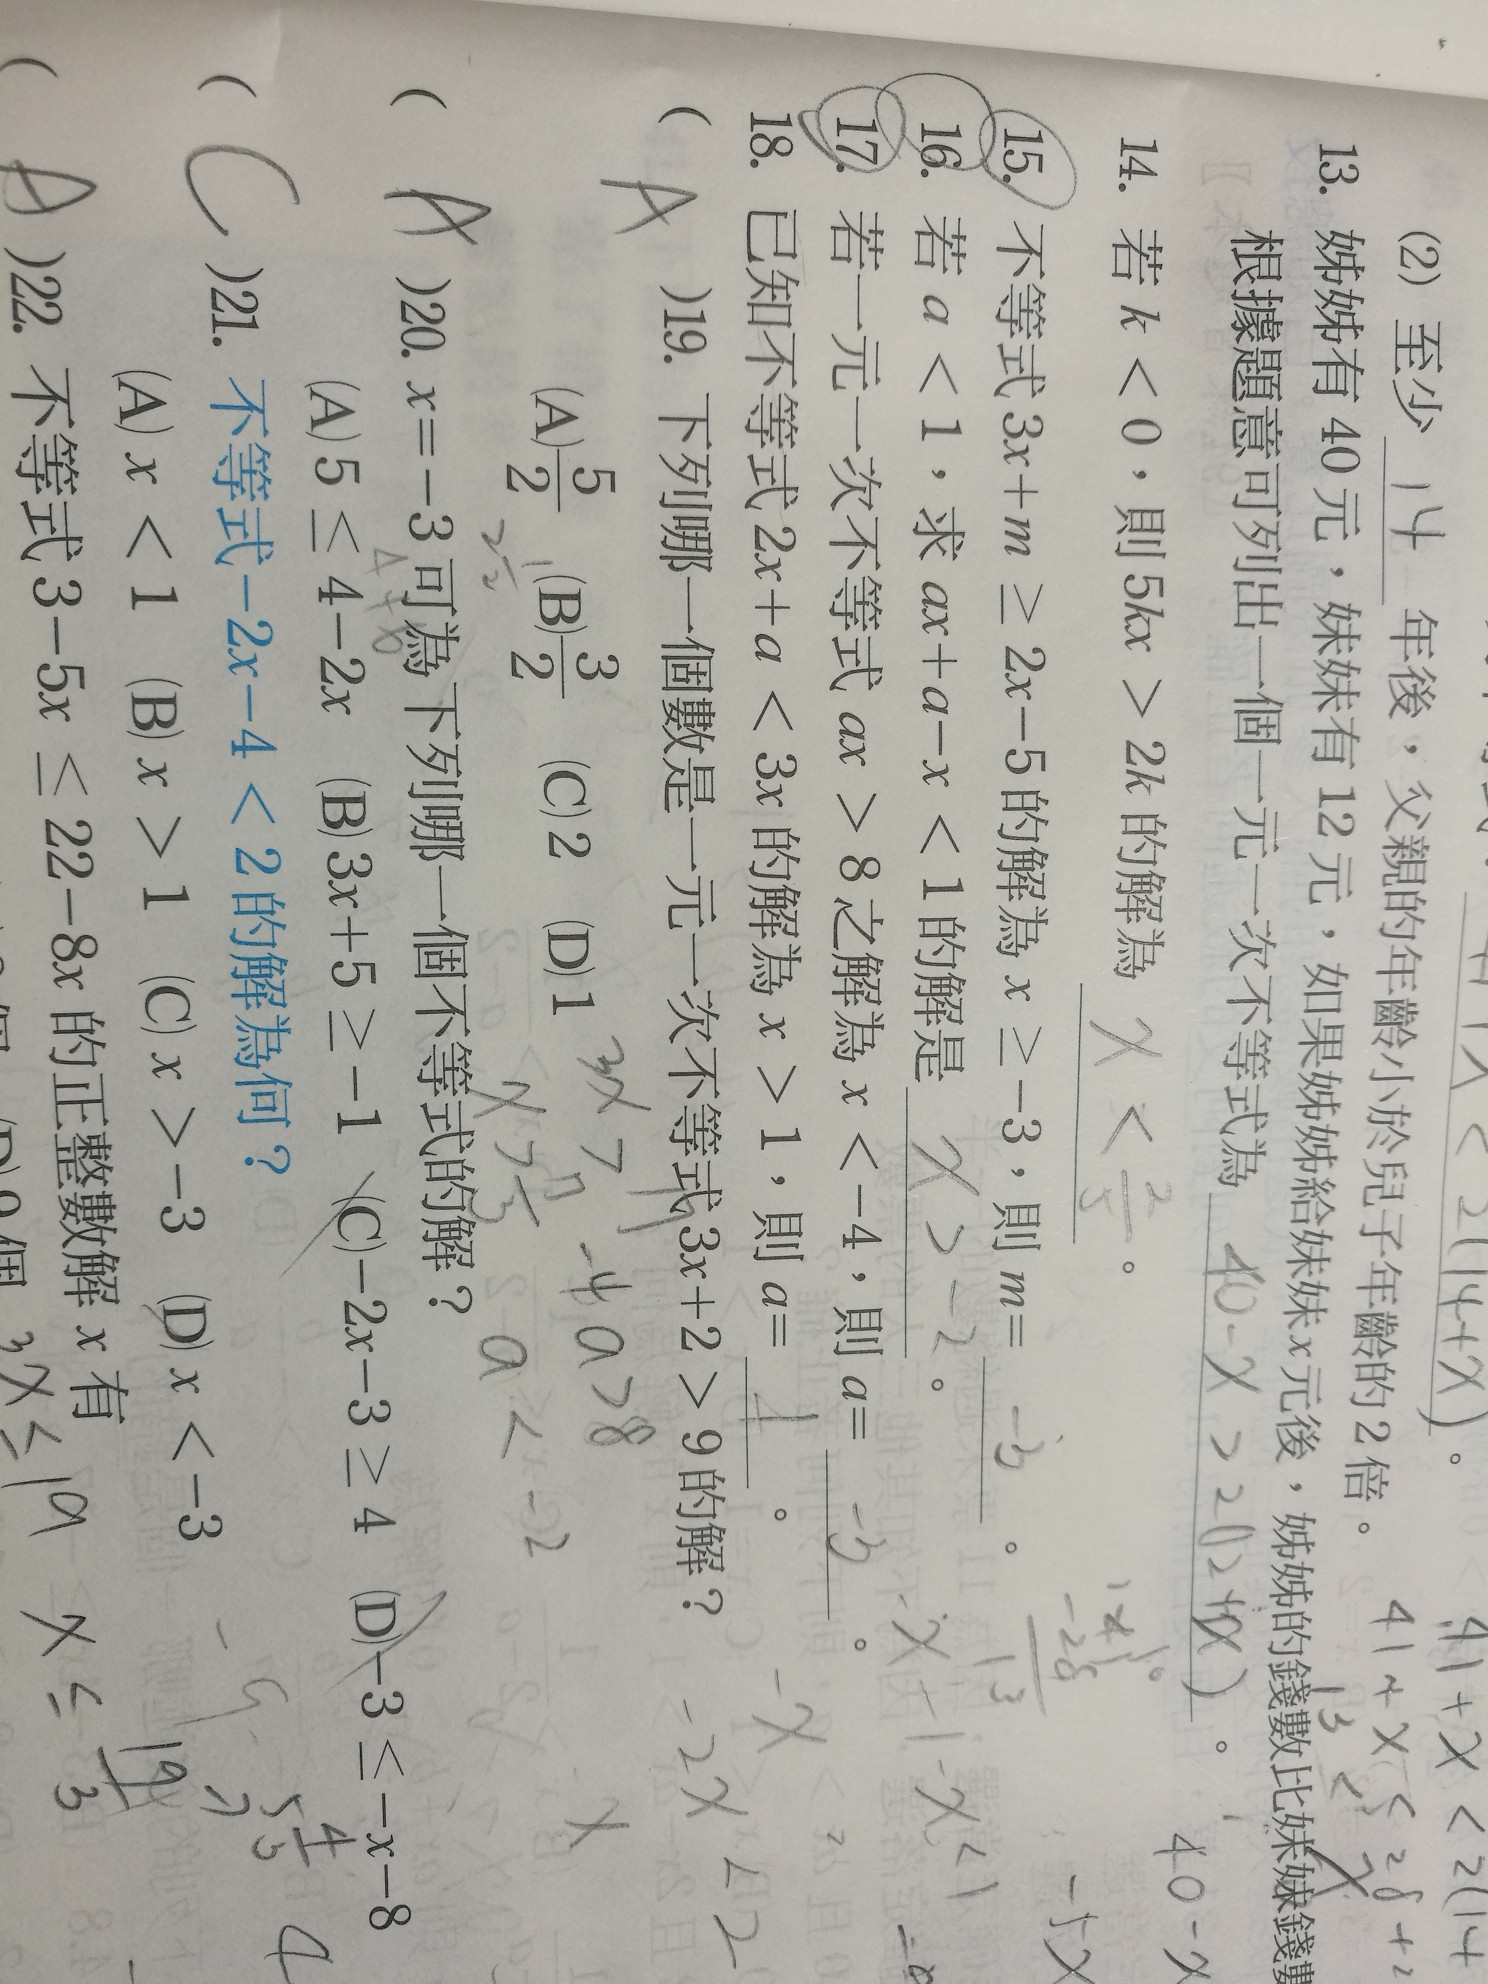 (2) 至少 14 年後，父親的年齡小於兒子年齡的2倍。
13. 姊姊有40元，妹妹有12元，如果姊姊給妹妹x元後，姊姊的錢數比妹妹錢數
根據題意可列出一個一元一次不等式為 40-x>2(12+x)。
14. 若k<0，則5kx>2k的解為 x<2/5。
15. 不等式3x+m≥2x-5的解為x≥-3，則m= -3。
16. 若a<1，求ax+a-x<1的解是 x>-2。
17. 若一元一次不等式ax>8之解為x<-4，則a= -3。
18. 已知不等式2x+a<3x的解為x>1，則a= 1。
( A )19. 下列哪一個數是一元一次不等式3x+2>9的解？
(A)5/2 (B)3/2 (C)2 (D)1
3x>7
-4a>8
x>7/3
a<-2
( A )20. x=-3可為下列哪一個不等式的解？
(A)5≤4-2x (B)3x+5≥-1 (C)-2x-3≥4 (D)-3≤-x-8
( C )21. 不等式-2x-4<2的解為何？
(A)x<1 (B)x>1 (C)x>-3 (D)x<-3
( A )22. 不等式3-5x≤22-8x的正整數解x有
3x≤19
x≤19/3